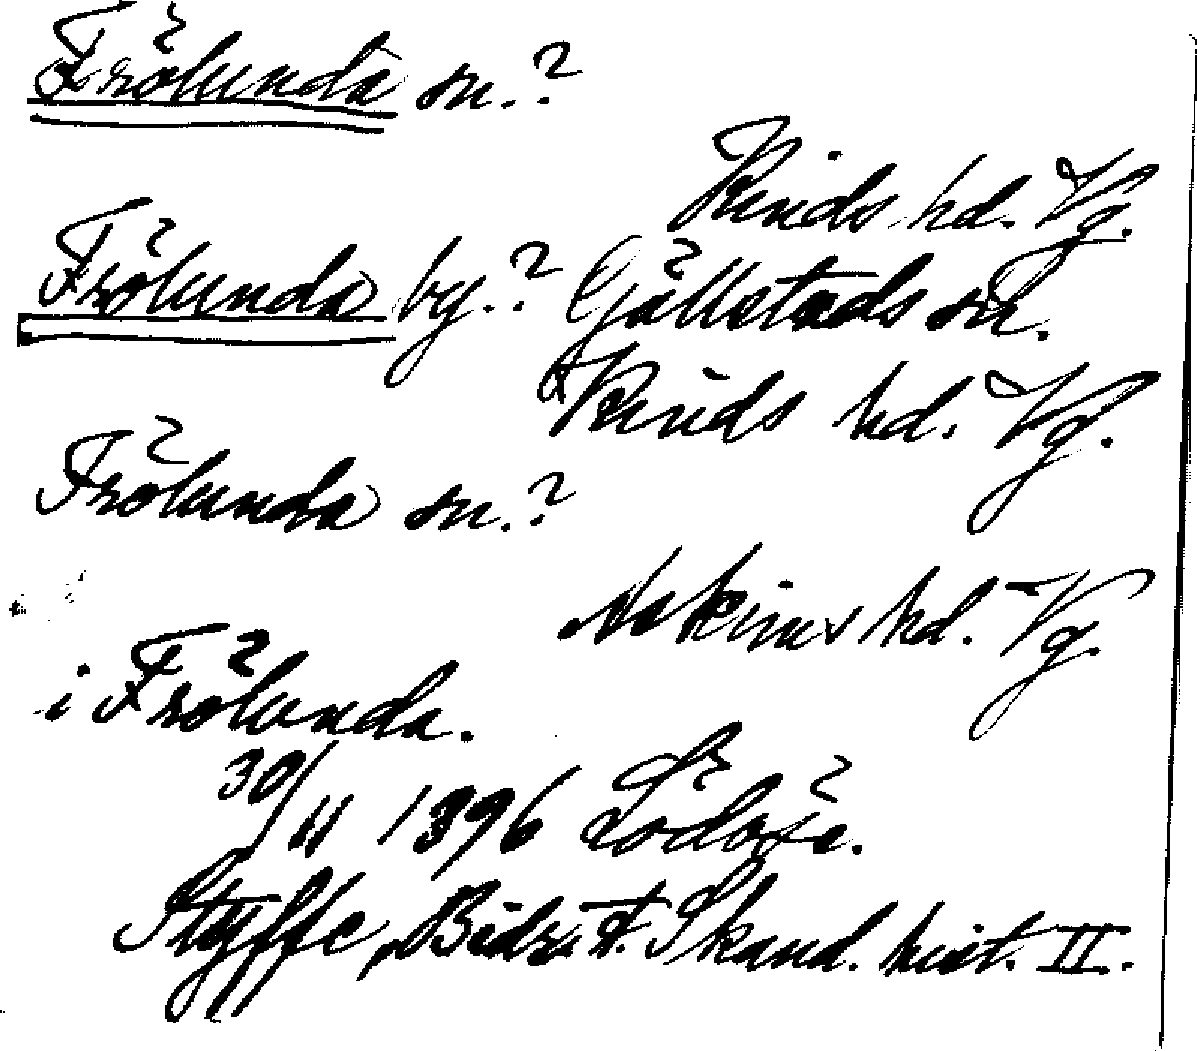 Frölunda sn.?
Kinds hd. Vg.
Frölunda by.? Gällstads sn.
Kinds hd. Vg.
Frölunda sn.?
Askims hd. Vg.
i Frölunda.
30/11 1396 Lödöse.
Styffe, Bidr. t. Skand. hist. II.